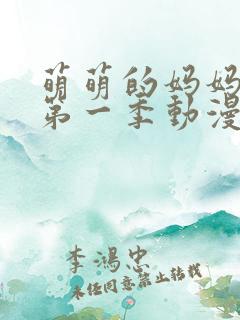 萌萌的妈妈
第一季動漫
李鴻忠
未经同意禁止转载